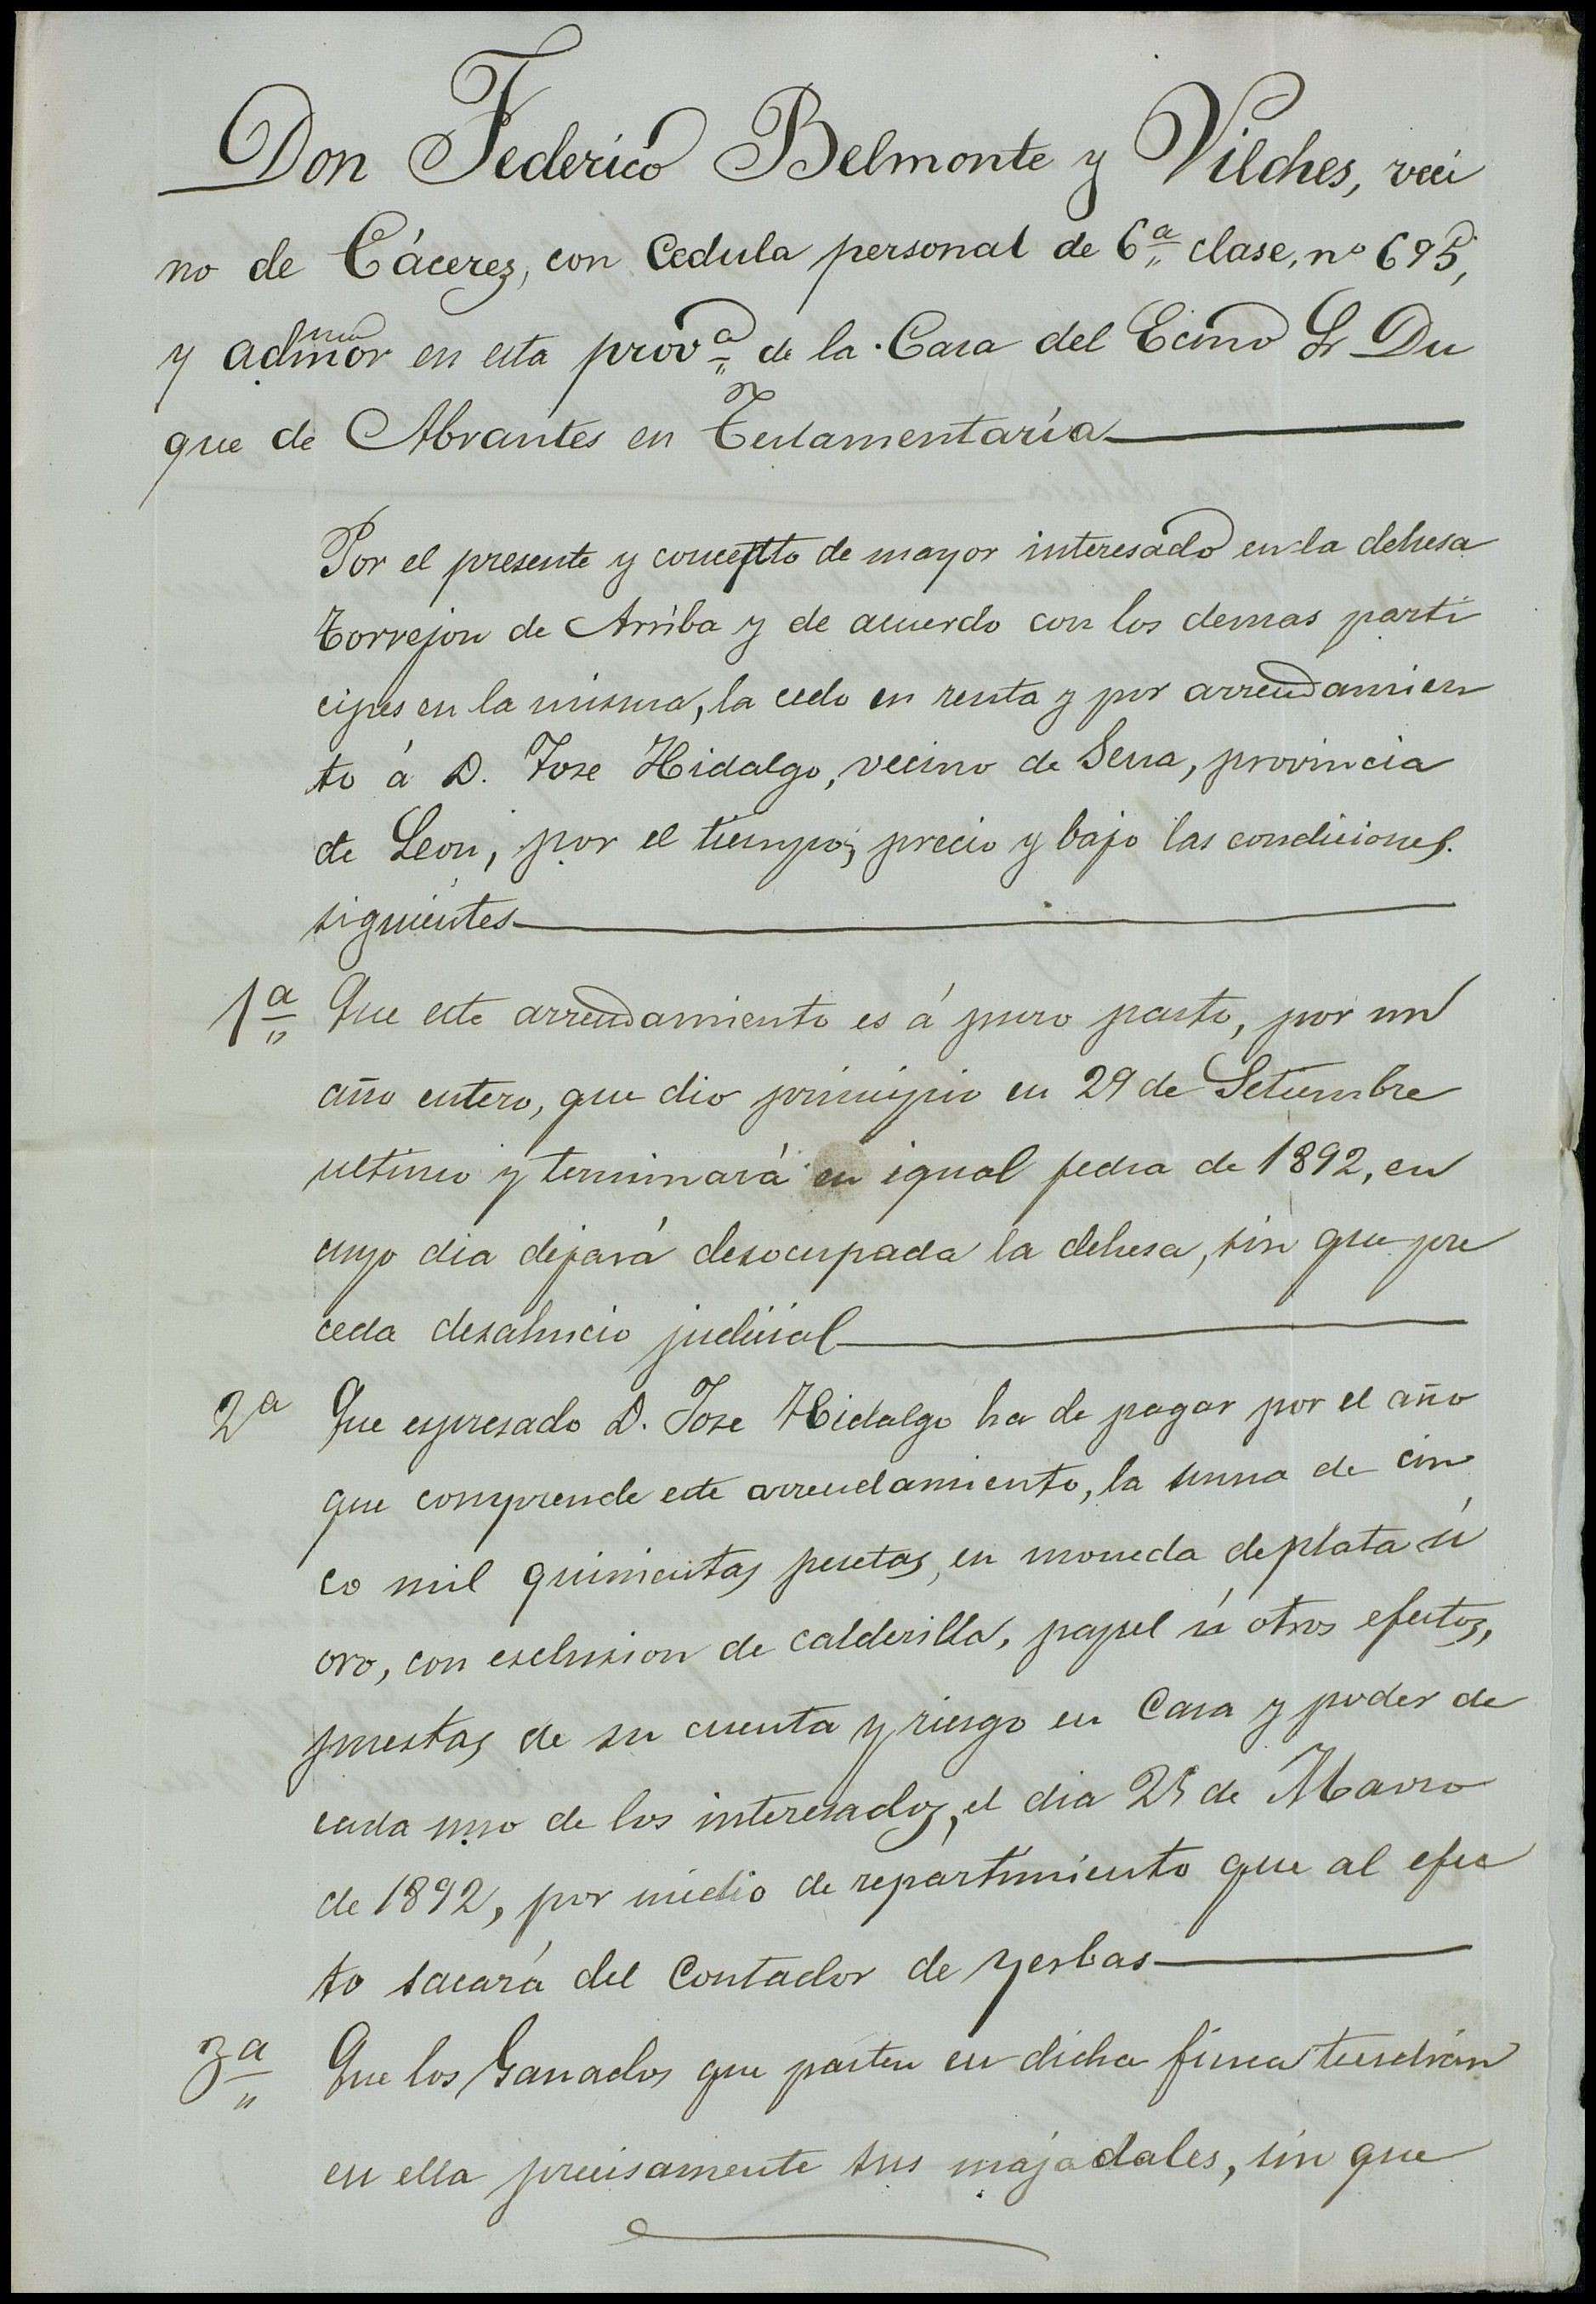 Don Federico Belmonte y Vilches, veci
no de Cáceres, con Cedula personal de 6ª clase, nº 695,
y admor en esta provª de la Casa del Ecmo Sr Du
que de Abrantes en Testamentaría
Por el presente y concepto de mayor interesado en la dehesa
Torrejon de Arriba y de acuerdo con los demas parti
cipes en la misma, la cedo en renta y por arrendamien
to á D. Jose Hidalgo, vecino de Sena, provincia
de Leon, por el tiempo, precio y bajo las condiciones
siguientes
1ª Que este arrendamiento es á puro pasto, por un
año entero, que dio principio en 29 de Setiembre
ultimo y terminará en igual fecha de 1892, en
cuyo dia dejará desocupada la dehesa, sin que pre
ceda desahucio judicial
2ª Que espresado D. Jose Hidalgo ha de pagar por el año
que comprende este arrendamiento, la suma de cin
co mil quinientas pesetas, en moneda de plata ú
oro, con esclusion de calderilla, papel ú otros efectos,
puestas de su cuenta y riesgo en Casa y poder de
cada uno de los interesados, el dia 25 de Marzo
de 1892, por medio de repartimiento que al efec
to sacará del Contador de yerbas
3ª Que los Ganados que pasten en dicha finca tendrán
en ella precisamente sus majadales, sin que